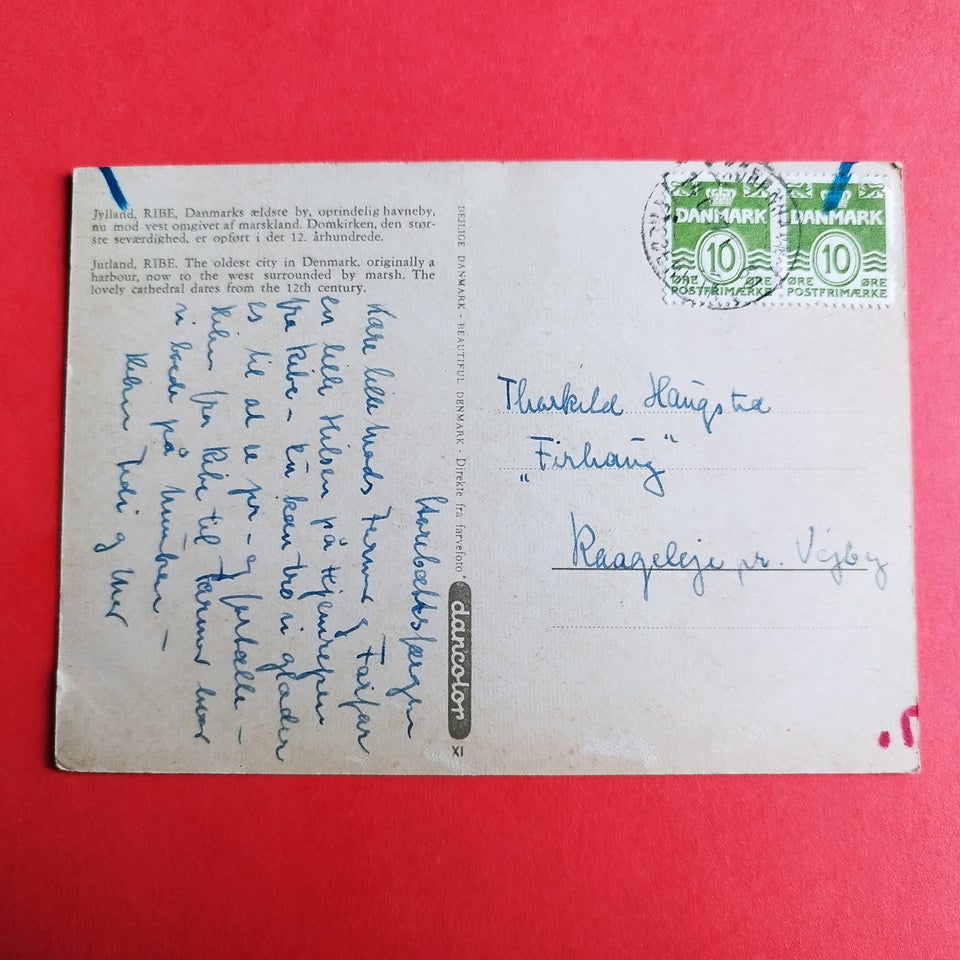 Jylland, RIBE, Danmarks ældste by, oprindelig havneby,
nu mod vest omgivet af marskland. Domkirken, den stør-
ste seværdighed, er opført i det 12. århundrede.
Jutland, RIBE. The oldest city in Denmark, originally a
harbour, now to the west surrounded by marsh. The
lovely cathedral dates from the 12th century.
Storebæltsfærgen
Kære lille Mads
en lille Hilsen på Hjemrejsen
fra Ribe – Du kan tro vi glæder
os til at se jer – og fortælle –
fra Ribe til
vi boede på
og Mor
DEJLIGE DANMARK - BEAUTIFUL DENMARK - Direkte fra farvefoto
dancolor
XI
DANMARK
10
ØRE ØRE
POSTFRIMÆRKE
DANMARK
10
ØRE ØRE
POSTFRIMÆRKE
Thorkild Haugsted
"Firhaug"
Raageleje pr. Vejby